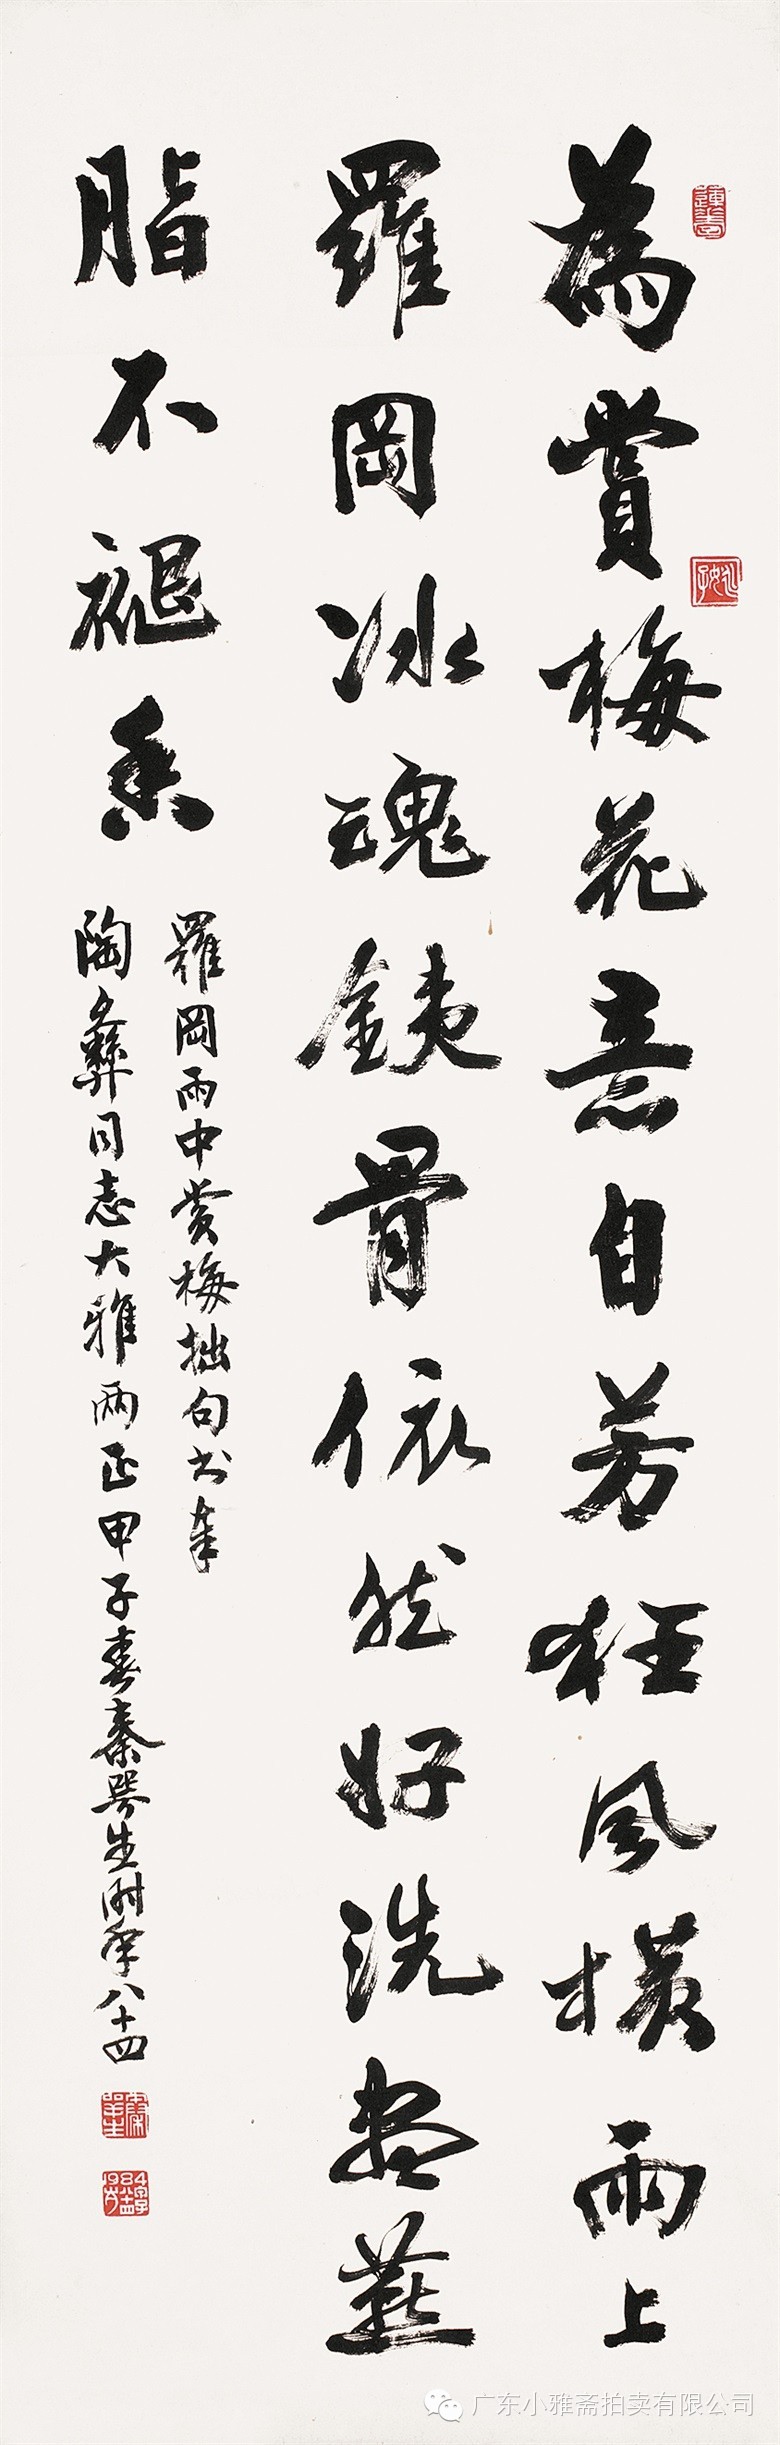 為賞梅花意自芳狂風橫雨上
羅岡冰魂銕骨依然好洗盡燕
脂不褪香
羅岡雨中賞梅拙句書奉
陶彝同志大雅兩正甲子春秦咢生時年八十四
秦咢生
广东小雅斋拍卖有限公司